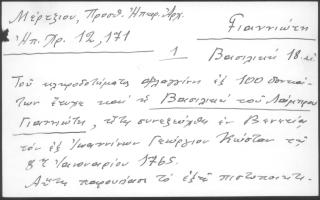 Μέρτζιου, Προσθ. Ἠπειρ. Ἀρχ.
Γιαννιώτη
Ἠπ. Χρ. 12, 171
1 Βασιλική 18. αἰ
Τοῦ κληροδοτήματος ἐξ 100 δουκά-
των ἔτυχε καί ἡ Βασιλική τοῦ Λάμπρου
Γιαννιώτη, ἥτις συνεζεύχθη ἐν Βενετίᾳ
τόν ἐξ Ἰωαννίνων Γεώργιον Κώσταν τῇ
8ῃ Ἰανουαρίου 1765.
Αὕτη παρουσίασε τό ἑξῆς πιστοποιητι-